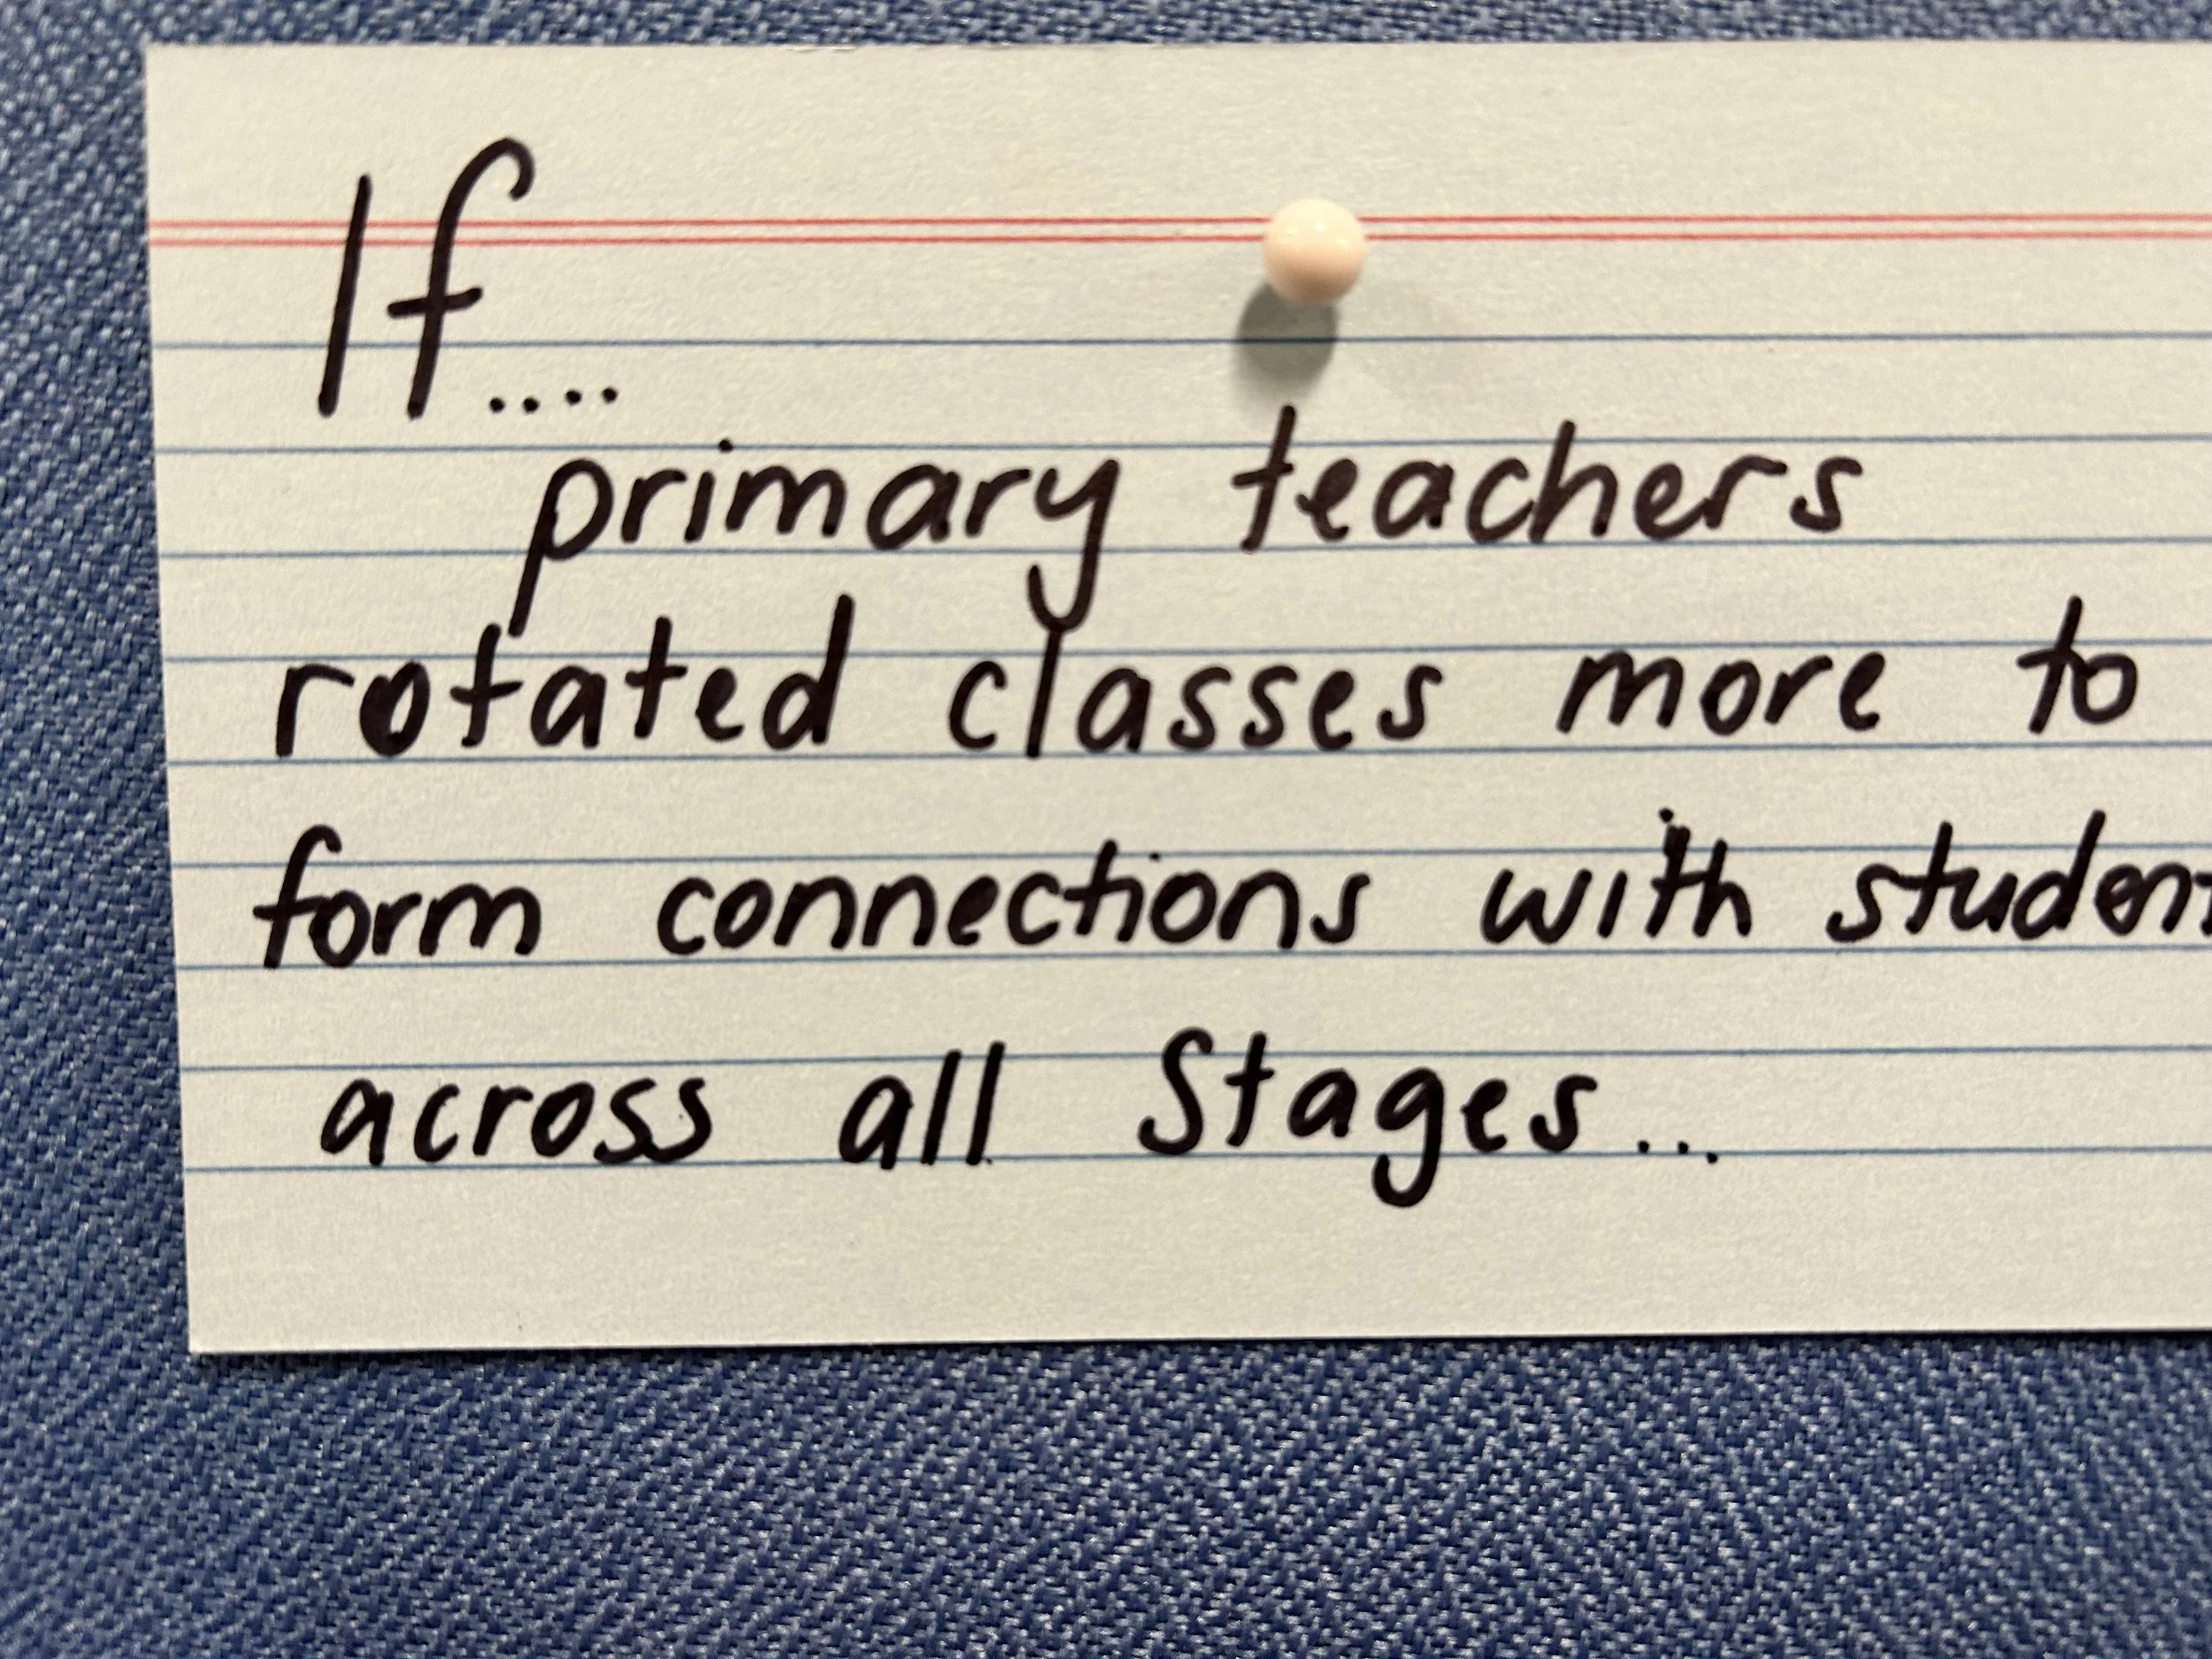 If....
primary teachers
rotated classes more to
form connections with student
across all Stages...